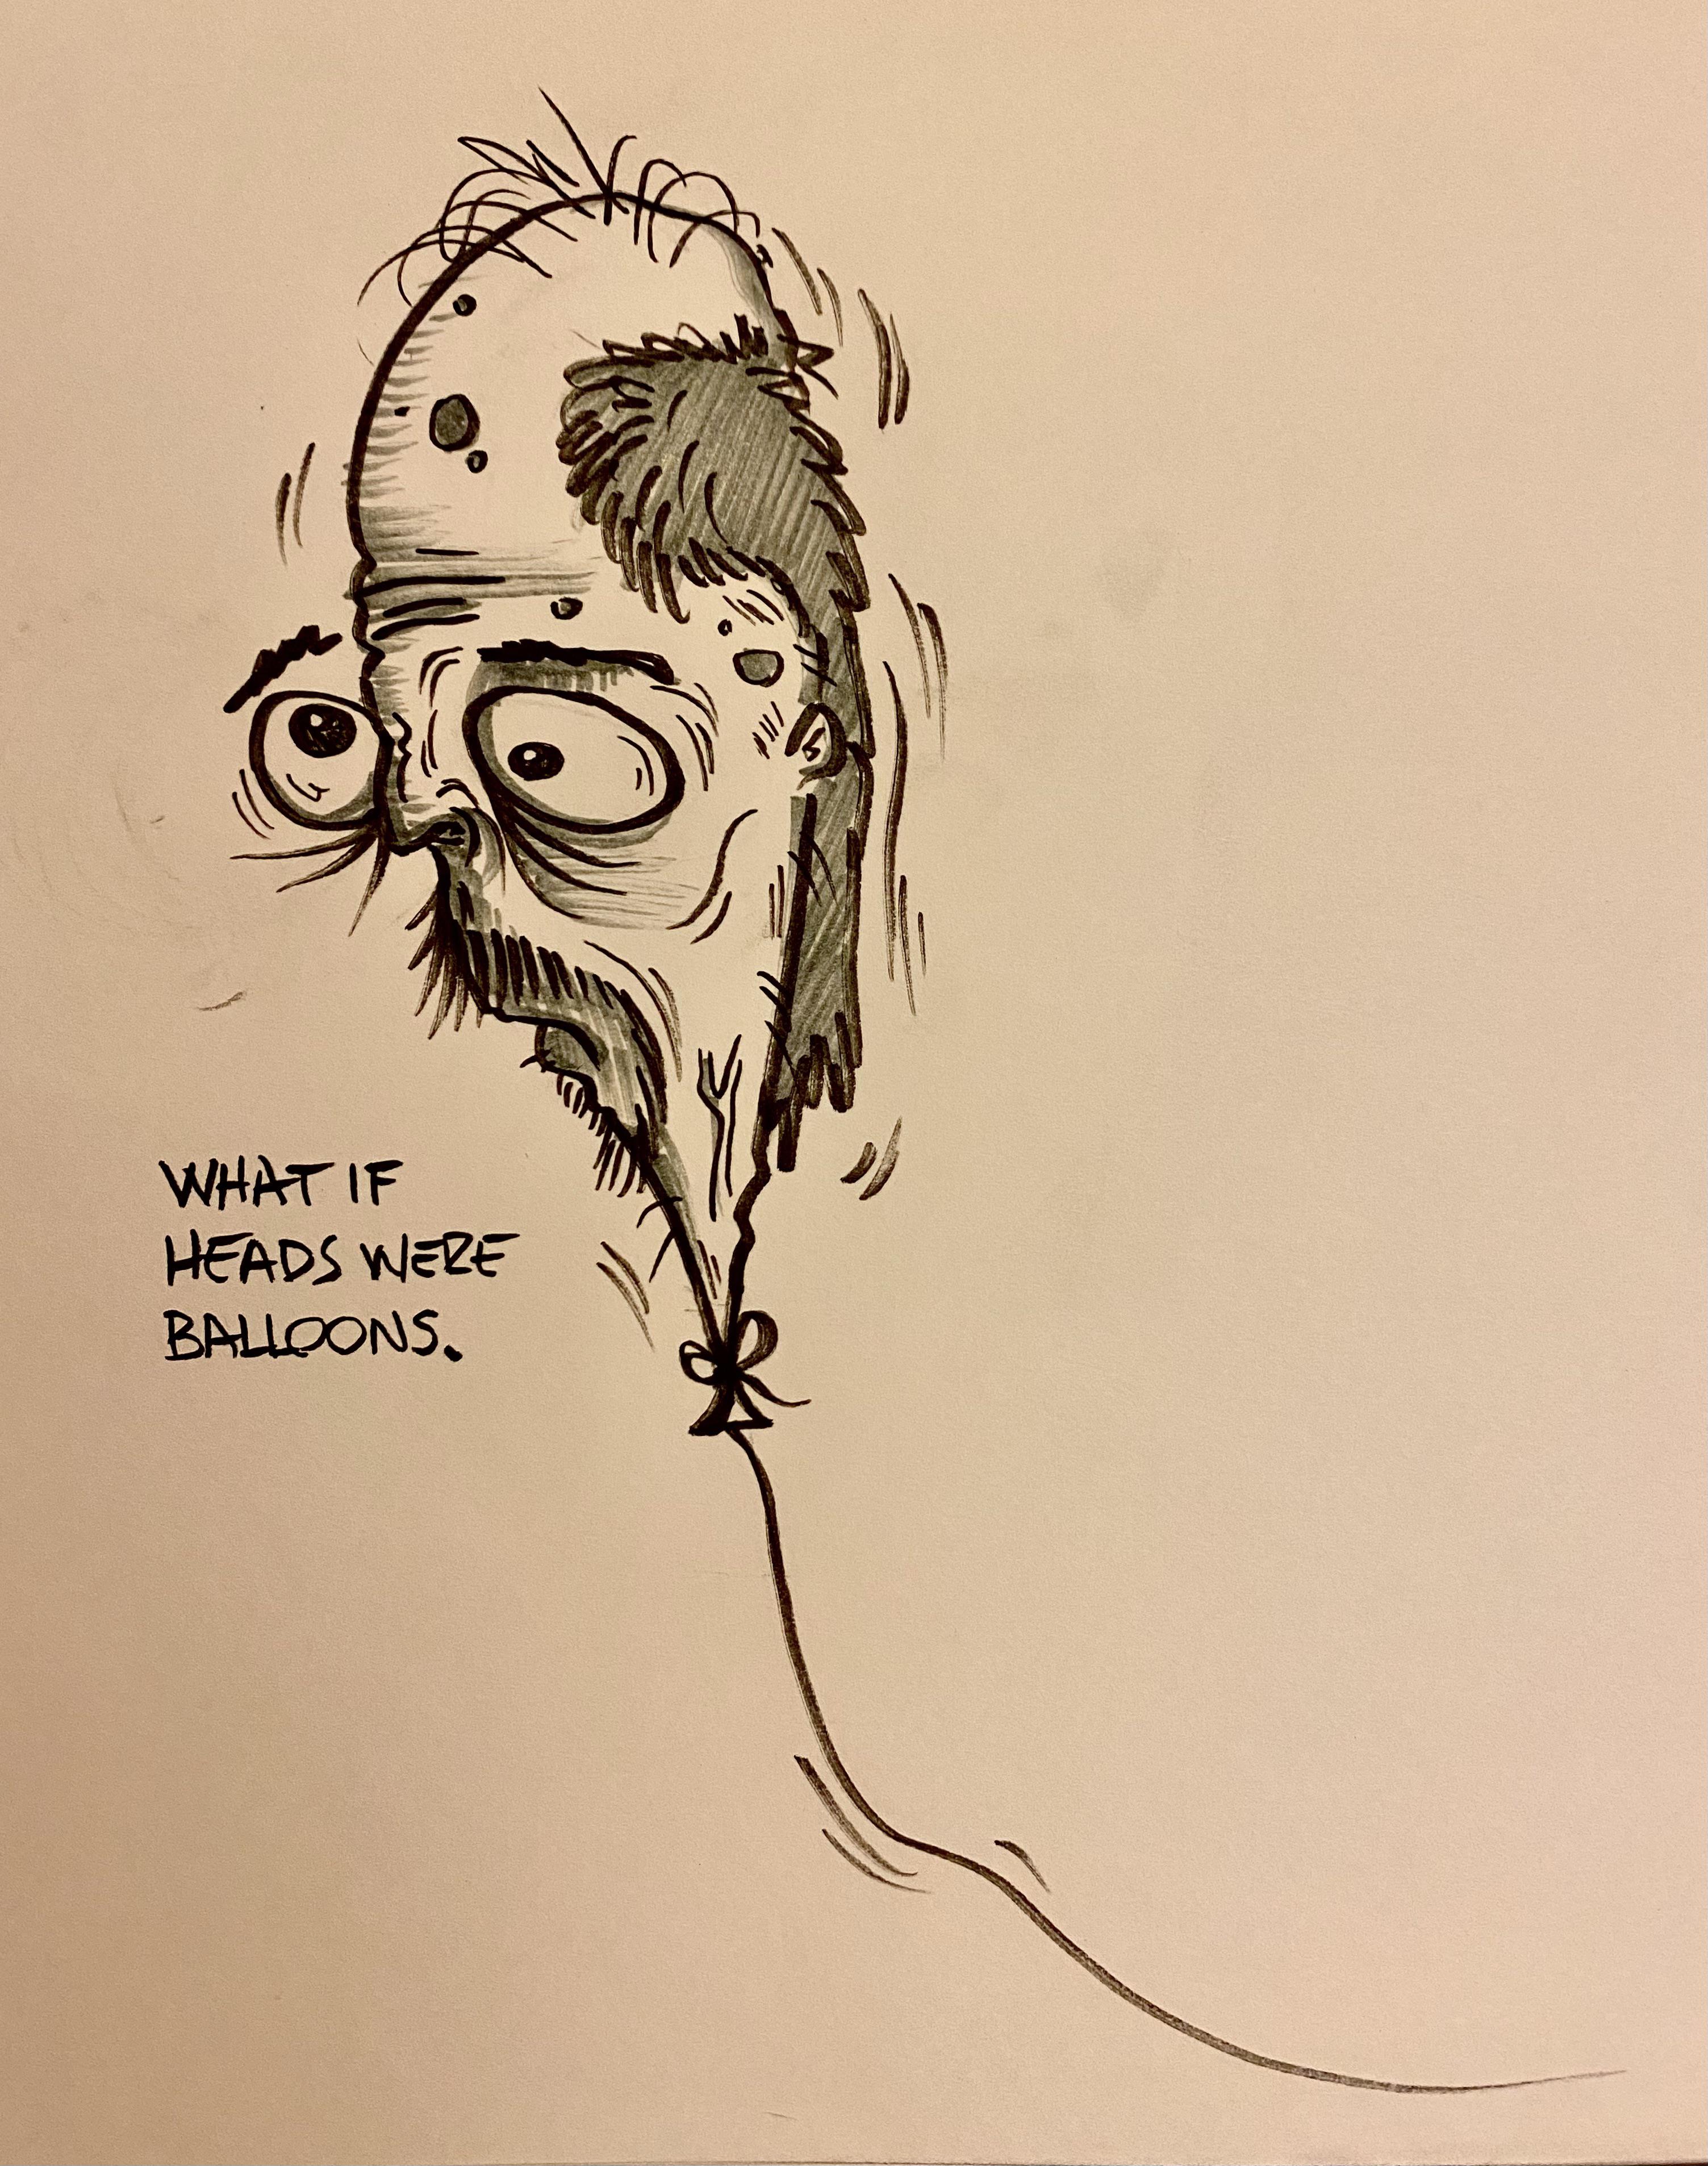 WHAT IF
HEADS WERE
BALLOONS.